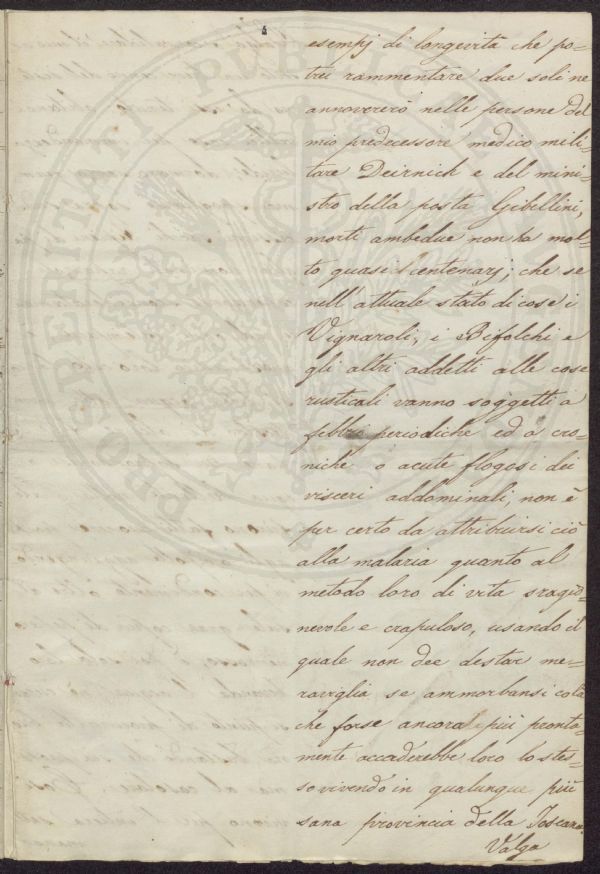 esempj di longevità che po-
trei rammentare due soli ne
annovererò nelle persone del
mio predecessore medico mili-
tare Deirnich e del mini-
stro della posta Gibellini,
morti ambedue non ha mol-
to quasi centenarj; che se
nell'attuale stato di cose i
Vignaroli, i Bifolchi e
gli altri addetti alle cose
rusticali vanno soggetti a
febbri periodiche ed a cro-
niche o acute flogosi dei
visceri addominali, non è
per certo da attribuirsi ciò
alla malaria quanto al
metodo loro di vita sragio-
nevole e crapuloso, usando il
quale non dee destar me-
raviglia se ammorbansi colà
che forse ancora più pronta-
mente accaderebbe loro lo stes-
so vivendo in qualunque più
sana provincia della Toscana.
Valga
PROSPERITATI PUBLICAE